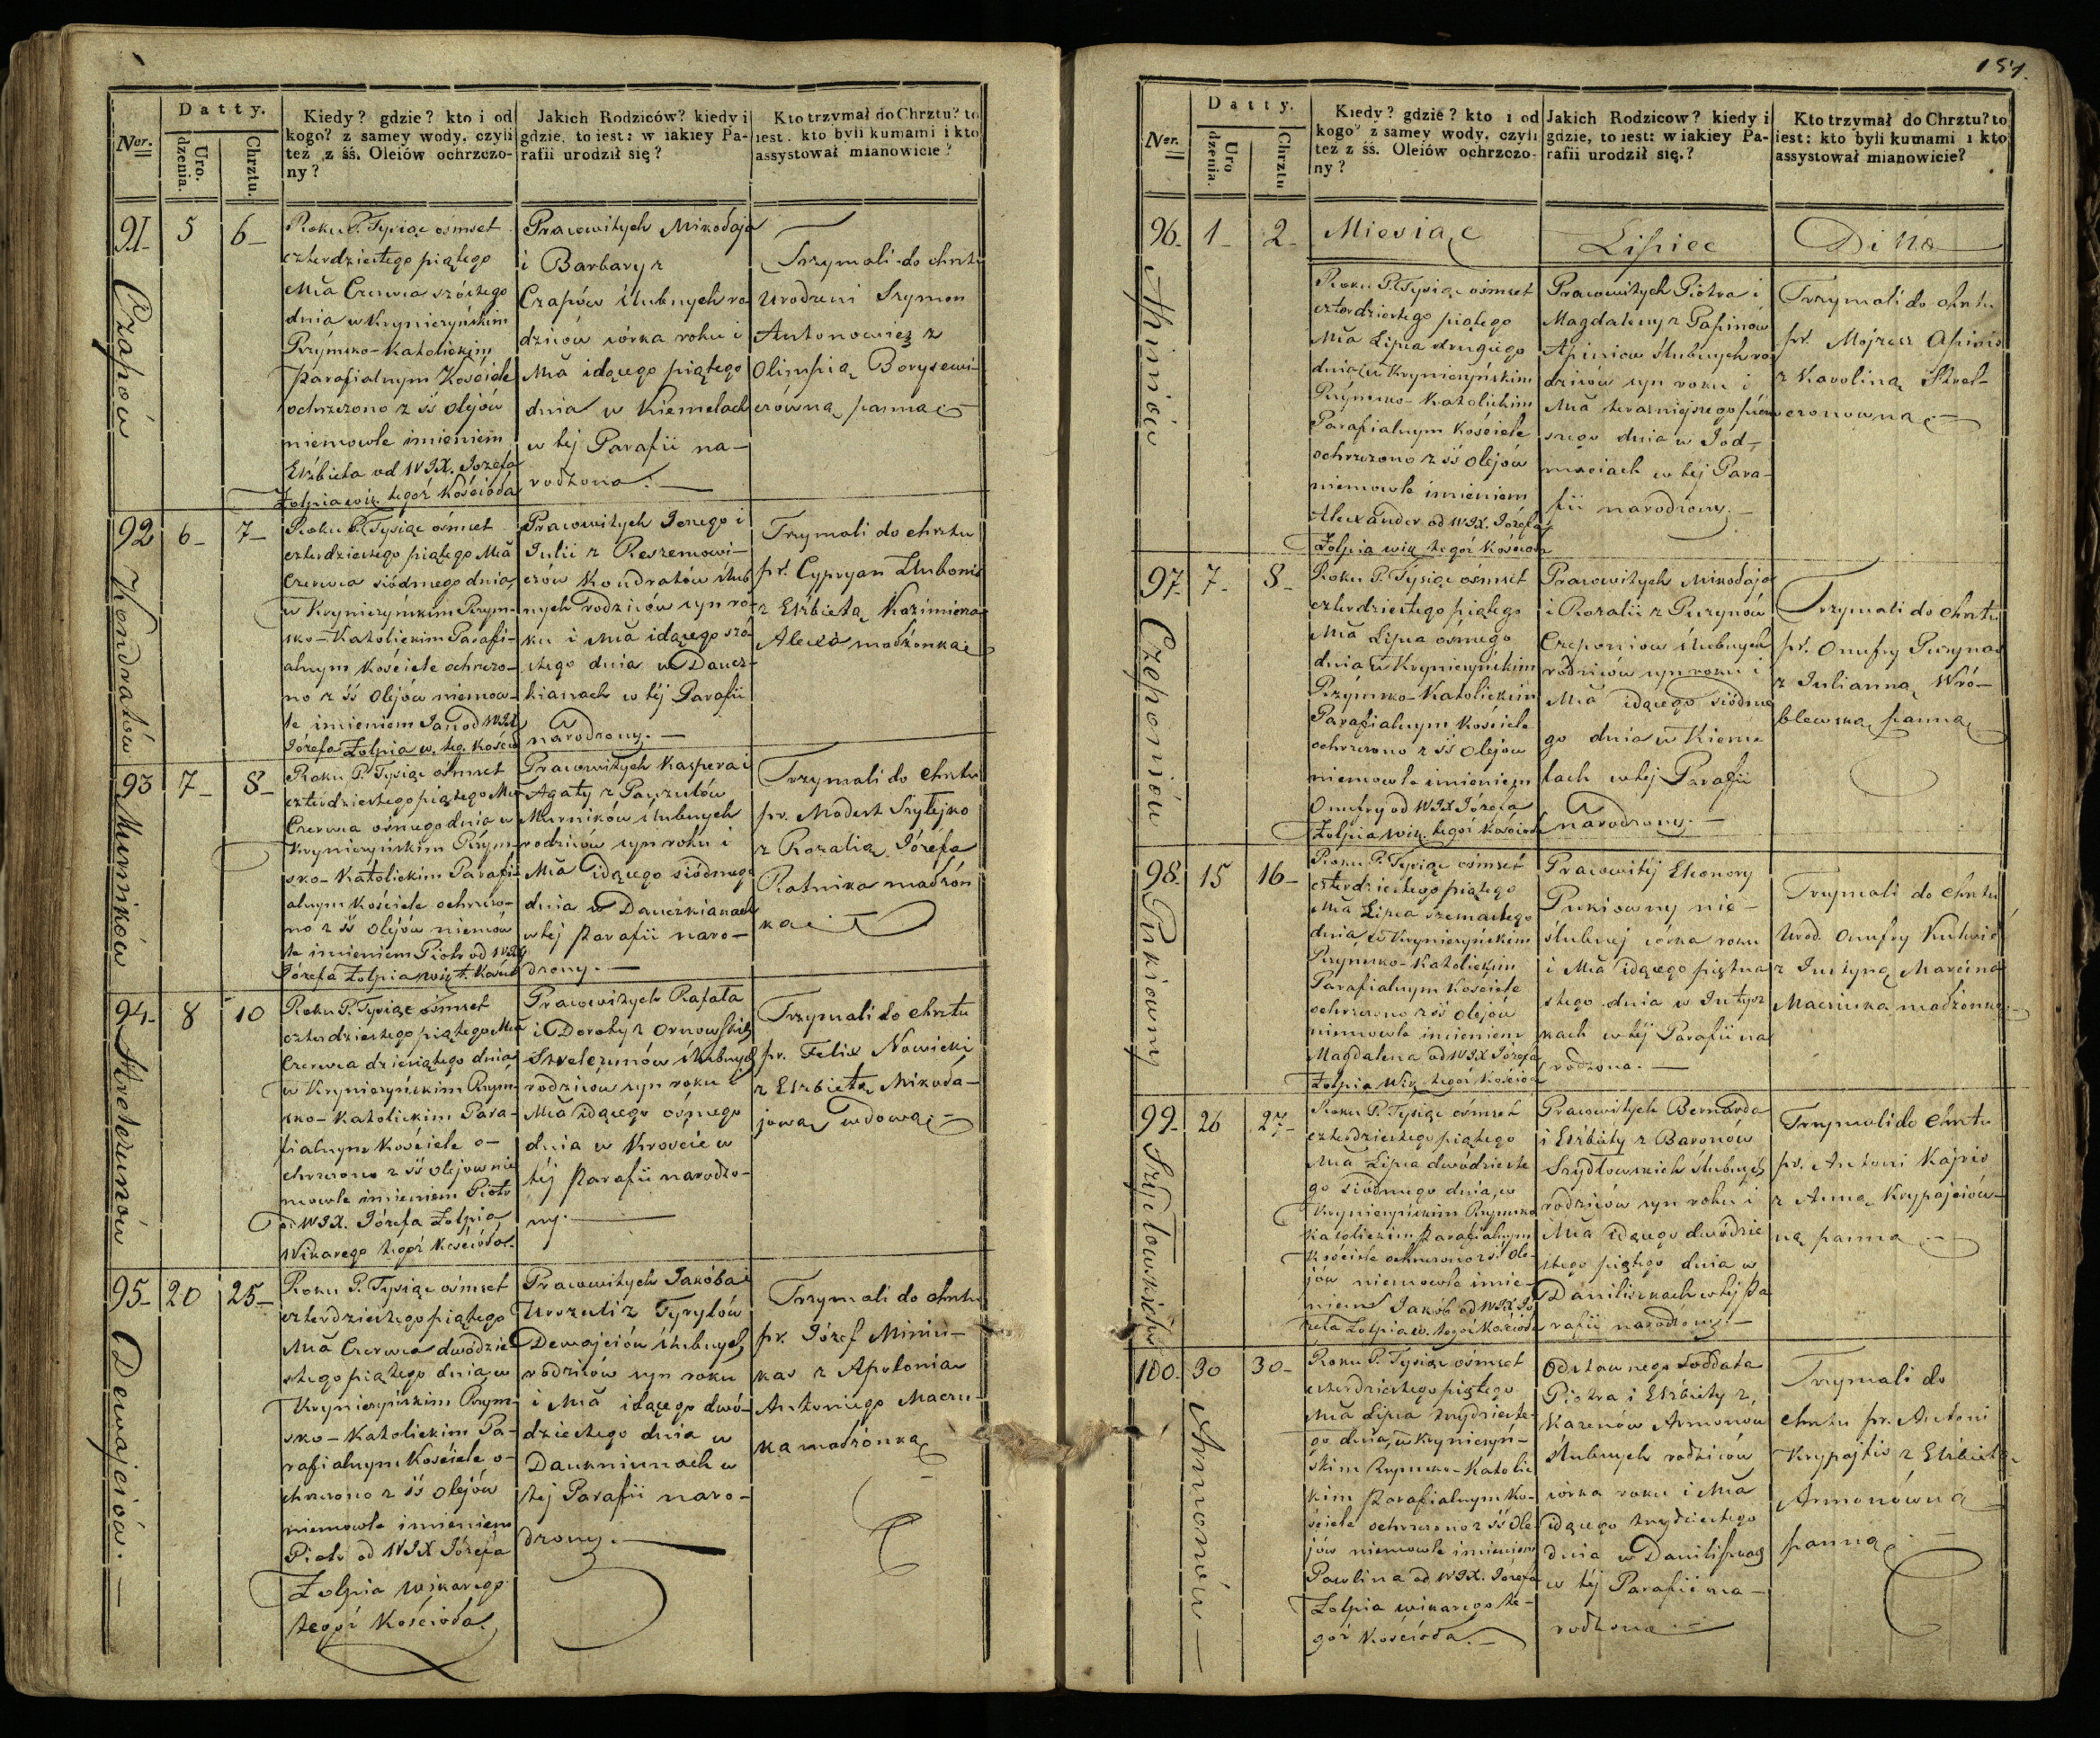 Ner.
Datty.
Uro.
dzenia.
Chrztu.
Kiedy? gdzie? kto i od
kogo? z samey wody, czyli
też z śś. Oleiów ochrzczo-
ny?
Jakich Rodziców? kiedy i
gdzie, to iest: w iakiey Pa-
rafii urodził się?
Kto trzymał do Chrztu? to
iest. kto byli kumami i kto
assystował mianowicie?
91-
5
6-
Czapów
Roku P. Tysiąc ośmset
czterdziestego piątego
Mca Czerwca szóstego
dnia w Kryniczyńskim
Rzymsko-Katolickim
Parafialnym Kościele
ochrzczono z śś olejów
niemowle imieniem
Elżbieta od WJX. Jozefa
Zołpia wik. tegoż Kościoła
Pracowitych Mikołaja
i Barbary z
Czapów ślubnych ro
dziców córka roku i
Mca idącego piątego
dnia w Kiemelach
w tej Parafii na-
rodzona.-
Trzymali do chrztu
Urodzeni Szymon
Antonowicz z
Olimpią Borysewi-
czówną panną
92
6-
7-
Kondratów
Roku P. Tysiąc ośmset
czterdziestego piątego Mca
Czerwca siódmego dnia
w Kryniczyńskim Rzym-
sko-Katolickim Parafi-
alnym Kościele ochrzczo-
no z śś Olejów niemow-
le imieniem Jan od WJX
Józefa Zołpia w. teg. Kościo
Pracowitych Jerzego i
Julii z Reszemowi-
czów Kondratów ślub
nych rodziców syn ro-
ku i Mca idącego szó
stego dnia w Daucz-
kianach w tej Parafii
narodzony.-
Trzymali do chrztu
pr. Cypryan Ilubonis
z Elżbietą Kazimierza
Alexa małżonką
93
7-
8-
Murników
Roku P. Tysiąc ośmset
czterdziestego piątego Mca
Czerwca ośmego dnia w
Krynieczyńskim Rzym-
sko-Katolickim Parafi-
alnym Kościele ochrzczo-
no z śś Olejów niemow
le imieniem Piotr od WJX
Józefa Zołpia wik. t. Kościo
Pracowitych Kaspera i
Agaty z Pauzulów
Murników ślubnych
rodziców syn roku i
Mca idącego siódmego
dnia w Dauczkianach
w tej Parafii naro-
dzony.-
Trzymali do Chrztu
pr. Modest Szytejko
z Rozalią Józefa
Ratnika małżon
ką
94-
8
10
Strelczunów
Roku P. Tysiąc ośmset
czterdziestego piątego Mca
Czerwca dziesiątego dnia
w Krynieczyńskim Rzym-
sko-Katolickim Para-
fialnym Kościele o-
chrzczono z śś olejow nie
mowle imieniem Piotr
od WJX. Józefa Zołpia
Wikarego tegoż Kościoła.
Pracowitych Rafała
i Doroty z Ornowskich
Strelczunów ślubnych
rodziców syn roku i
Mca idącego ośmego
dnia w Krowcie w
tej Parafii narodzo-
ny.-
Trzymali do chrztu
pr. Felix Nowicki
z Elżbietą Mikoła-
jową wdową
95-
20
25-
Dewajciów.-
Roku P. Tysiąc ośmset
czterdziestego piątego
Mca Czerwca dwódzie
stego piątego dnia, w
Krynieczyńskim Rzym-
sko-Katolickim Pa-
rafialnym Kościele o-
chrzczono z śś Olejów
niemowle imieniem
Piotr od WJX Józefa
Zołpia wikarego
tegoż Kościoła.
Pracowitych Jakóba i
Urszuli z Tyrylów
Dewajciów ślubnych
rodziców syn roku
i Mca idącego dwó-
dziestego dnia w
Daukniunach w
tej Parafii naro-
dzony.-
Trzymali do chrztu
pr. Józef Miniu-
kas z Apolonią
Antoniego Maczu-
ka małżonką
151.
Ner.
Datty.
Uro
dzenia.
Chrztu
Kiedy? gdzie? kto i od
kogo? z samey wody, czyli
też z śś. Oleiów ochrzczo-
ny?
Jakich Rodzicow? kiedy i
gdzie, to iest: w iakiey Pa-
rafii urodził się.?
Kto trzymał do Chrztu? to
iest: kto byli kumami i kto
assystował mianowicie?
96-
1-
2-
Apiniów
Miesiąc
Lipiec
Dina
Roku P. Tysiąc ośmset
czterdziestego piątego
Mca Lipca drugiego
dnia, w Krynieczyńskim
Rzymsko-Katolickim
Parafialnym Kościele
ochrzczono z śś Olejów
niemowle imieniem
Alexander od WJX. Józefa
Zołpia wik. tegoż Kościoła
Pracowitych Piotra i
Magdaleny z Papinów
Apiniow ślubnych ro
dziców syn roku i
Mca teraźniejszego pierw
szego dnia w Jod-
mściach w tej Para-
fii narodzony.-
Trzymali do chrztu
pr. Mojżesz Apinis
z Karoliną Strel-
czonowną
97-
7-
8-
Czeponiów
Roku P. Tysiąc ośmset
czterdziestego piątego
Mca Lipca ośmego
dnia w Krynieczyńskim
Rzymsko-Katolickim
Parafialnym Kościele
ochrzczono z śś Olejów
niemowle imieniem
Onufry od WJX Józefa
Zołpia wik. tegoż Kościoła
Pracowitych Mikołaja
i Rozalii z Puzynów
Czeponiow ślubnych
rodziców syn roku i
Mca idącego siódme
go dnia w Kieme
lach w tej Parafii
narodzony.-
Trzymali do Chrztu
pr. Onufry Puzynas
z Julianną Wró-
blewską panną
98-
15
16-
Pukiowny
Roku P. Tysiąc ośmset
czterdziestego piątego
Mca Lipca szesnastego
dnia, w Krynieczyńskim
Rzymsko-Katolickim
Parafialnym Kościele
ochrzczono z śś olejów
niemowle imieniem
Magdalena od WJX Józefa
Zołpia Wik tegoż Kościoła
Pracowitej Eleonory
Pukiowny nie-
ślubnej córka roku
i Mca idącego piętna
stego dnia w Jutysz
kach w tej Parafii na
rodzona.-
Trzymali do Chrztu
Urod. Onufry Kutwic
z Justyną Marcina
Macziuka małżonką
99-
26
27-
Szydłowskich
Roku P. Tysiąc ośmset
czterdziestego piątego
Mca Lipca dwódzieste
go siódmego dnia, w
Krynieczyńskim Rzymsko
Katolickim Parafialnym
Kościele ochrzczono z śś Ole-
jów niemowle imie-
niem Jakób od WJX Jó
zefa Zołpia w. tegoż Kościoła
Pracowitych Bernarda
i Elżbiety z Baronów
Szydłowskich ślubnych
rodziców syn roku i
Mca idącego dwódzie
stego piątego dnia w
Daniliszkach w tej Pa
rafii narodzony.-
Trzymali do Chrztu
pr. Antoni Kajris
z Anną Krypajciów-
ną panną
100-
30
30-
Armonów-
Roku P. Tysiąc ośmset
czterdziestego piątego
Mca Lipca trzydzieste-
go dnia, w Krynieczyń-
skim Rzymsko-Katolic
kim Parafialnym Ko-
ściele ochrzczono z śś Ole
jów niemowle imieniem
Pawlina od WJX. Jozefa
Zołpia wikarego te-
goż Kościoła.-
Odstawnego Sołdata
Piotra i Elżbiety z
Karenów Armonów
ślubnych rodziców
córka roku i Mca
idącego trzydziestego
dnia w Daniliszkach
w tej Parafii na-
rodzona.-
Trzymali do
chrztu pr. Antoni
Krypajtis z Elżbietą
Armonówną
panną.